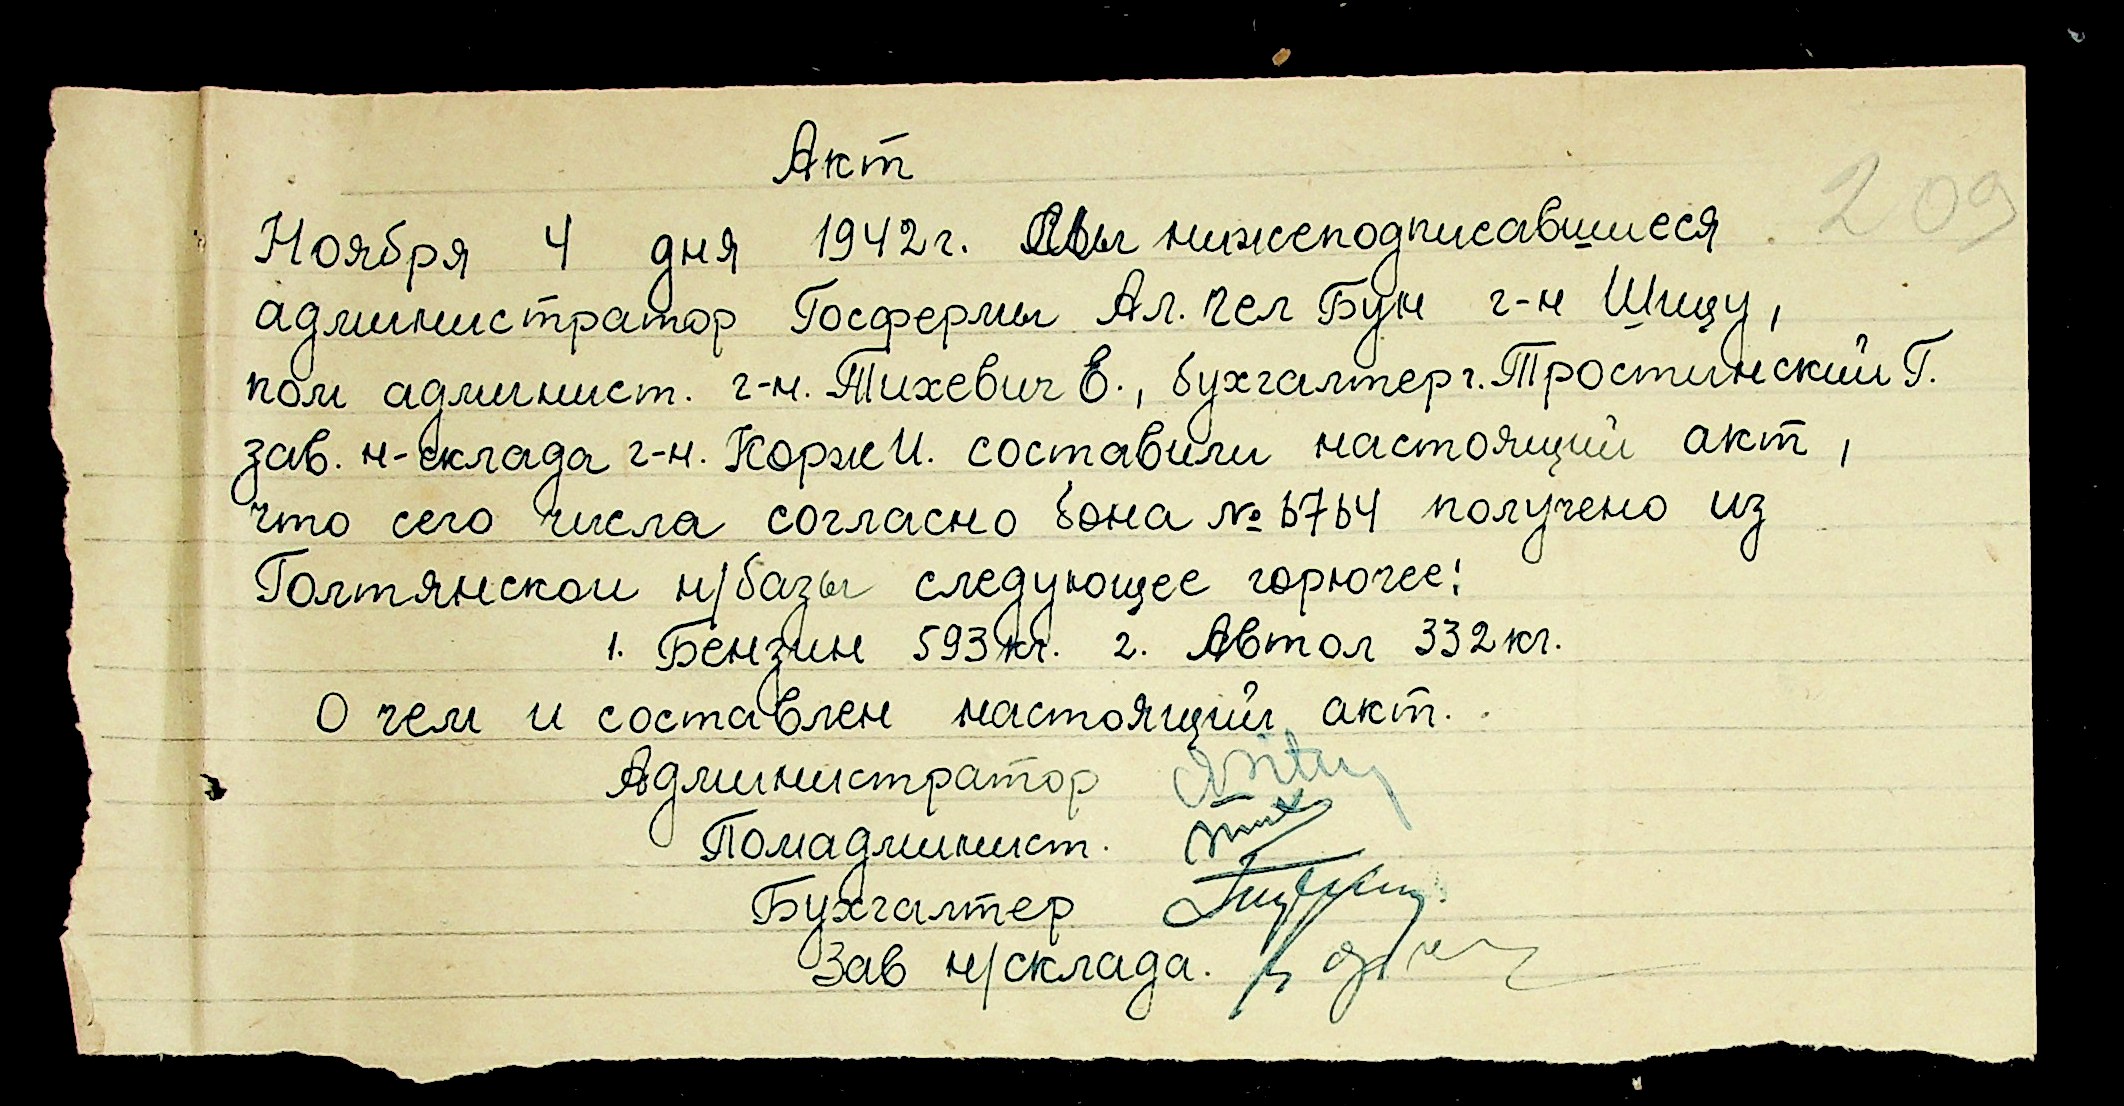 Акт
209
Ноября 4 дня 1942 г. Мы нижеподписавшиеся
администратор Госфермы Ал. чел Бун г-н Шицу,
пом админист. г-н. Тихевич Е., бухгалтер г. Тростинский Г.
зав. н-склада г-н. Корж И. составили настоящий акт,
что сего числа согласно бона № 6764 получено из
Голтянской н/базы следующее горючее:
1. Бензин 593 кг. 2. Автол 332 кг.
О чем и составлен настоящий акт.
Администратор
Помадминист.
Бухгалтер
Зав н/склада.